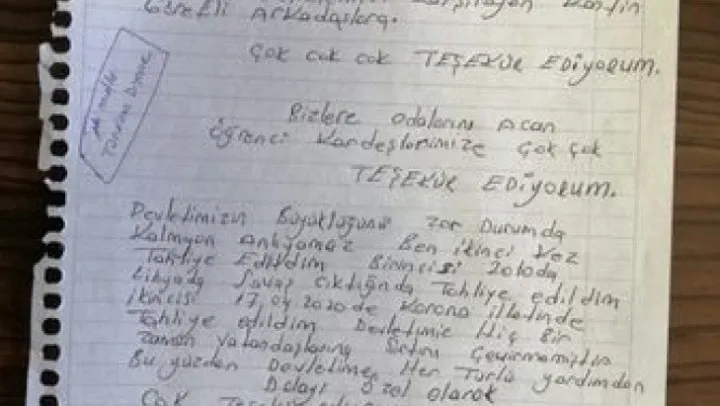 karşılayan Kantin
Görevli Arkadaşlara.
Çok cok cok TEŞEKÜR EDİYORUM.
Bizlere odalarını Acan
öğrenci Kardeşlerimize çok çok
TEŞEKÜR EDİYORUM.
Devletimizin Büyüklüğünü zor Durumda
Kalmıyan Anlıyamaz Ben ikinci kez
Tahliye Edildim Birincisi 2010da
Libyada Savaş çıktığında Tahliye edildim
ikincisi 17,04 2020de Korona illetinde
Tahliye edildim Devletimiz Hiç Bir
zaman vatandaşlarına Sırtını Çevirmemiştir
Bu yüzden Devletime Her Türlü yardımdan
Dolayı özel olarak
Çok